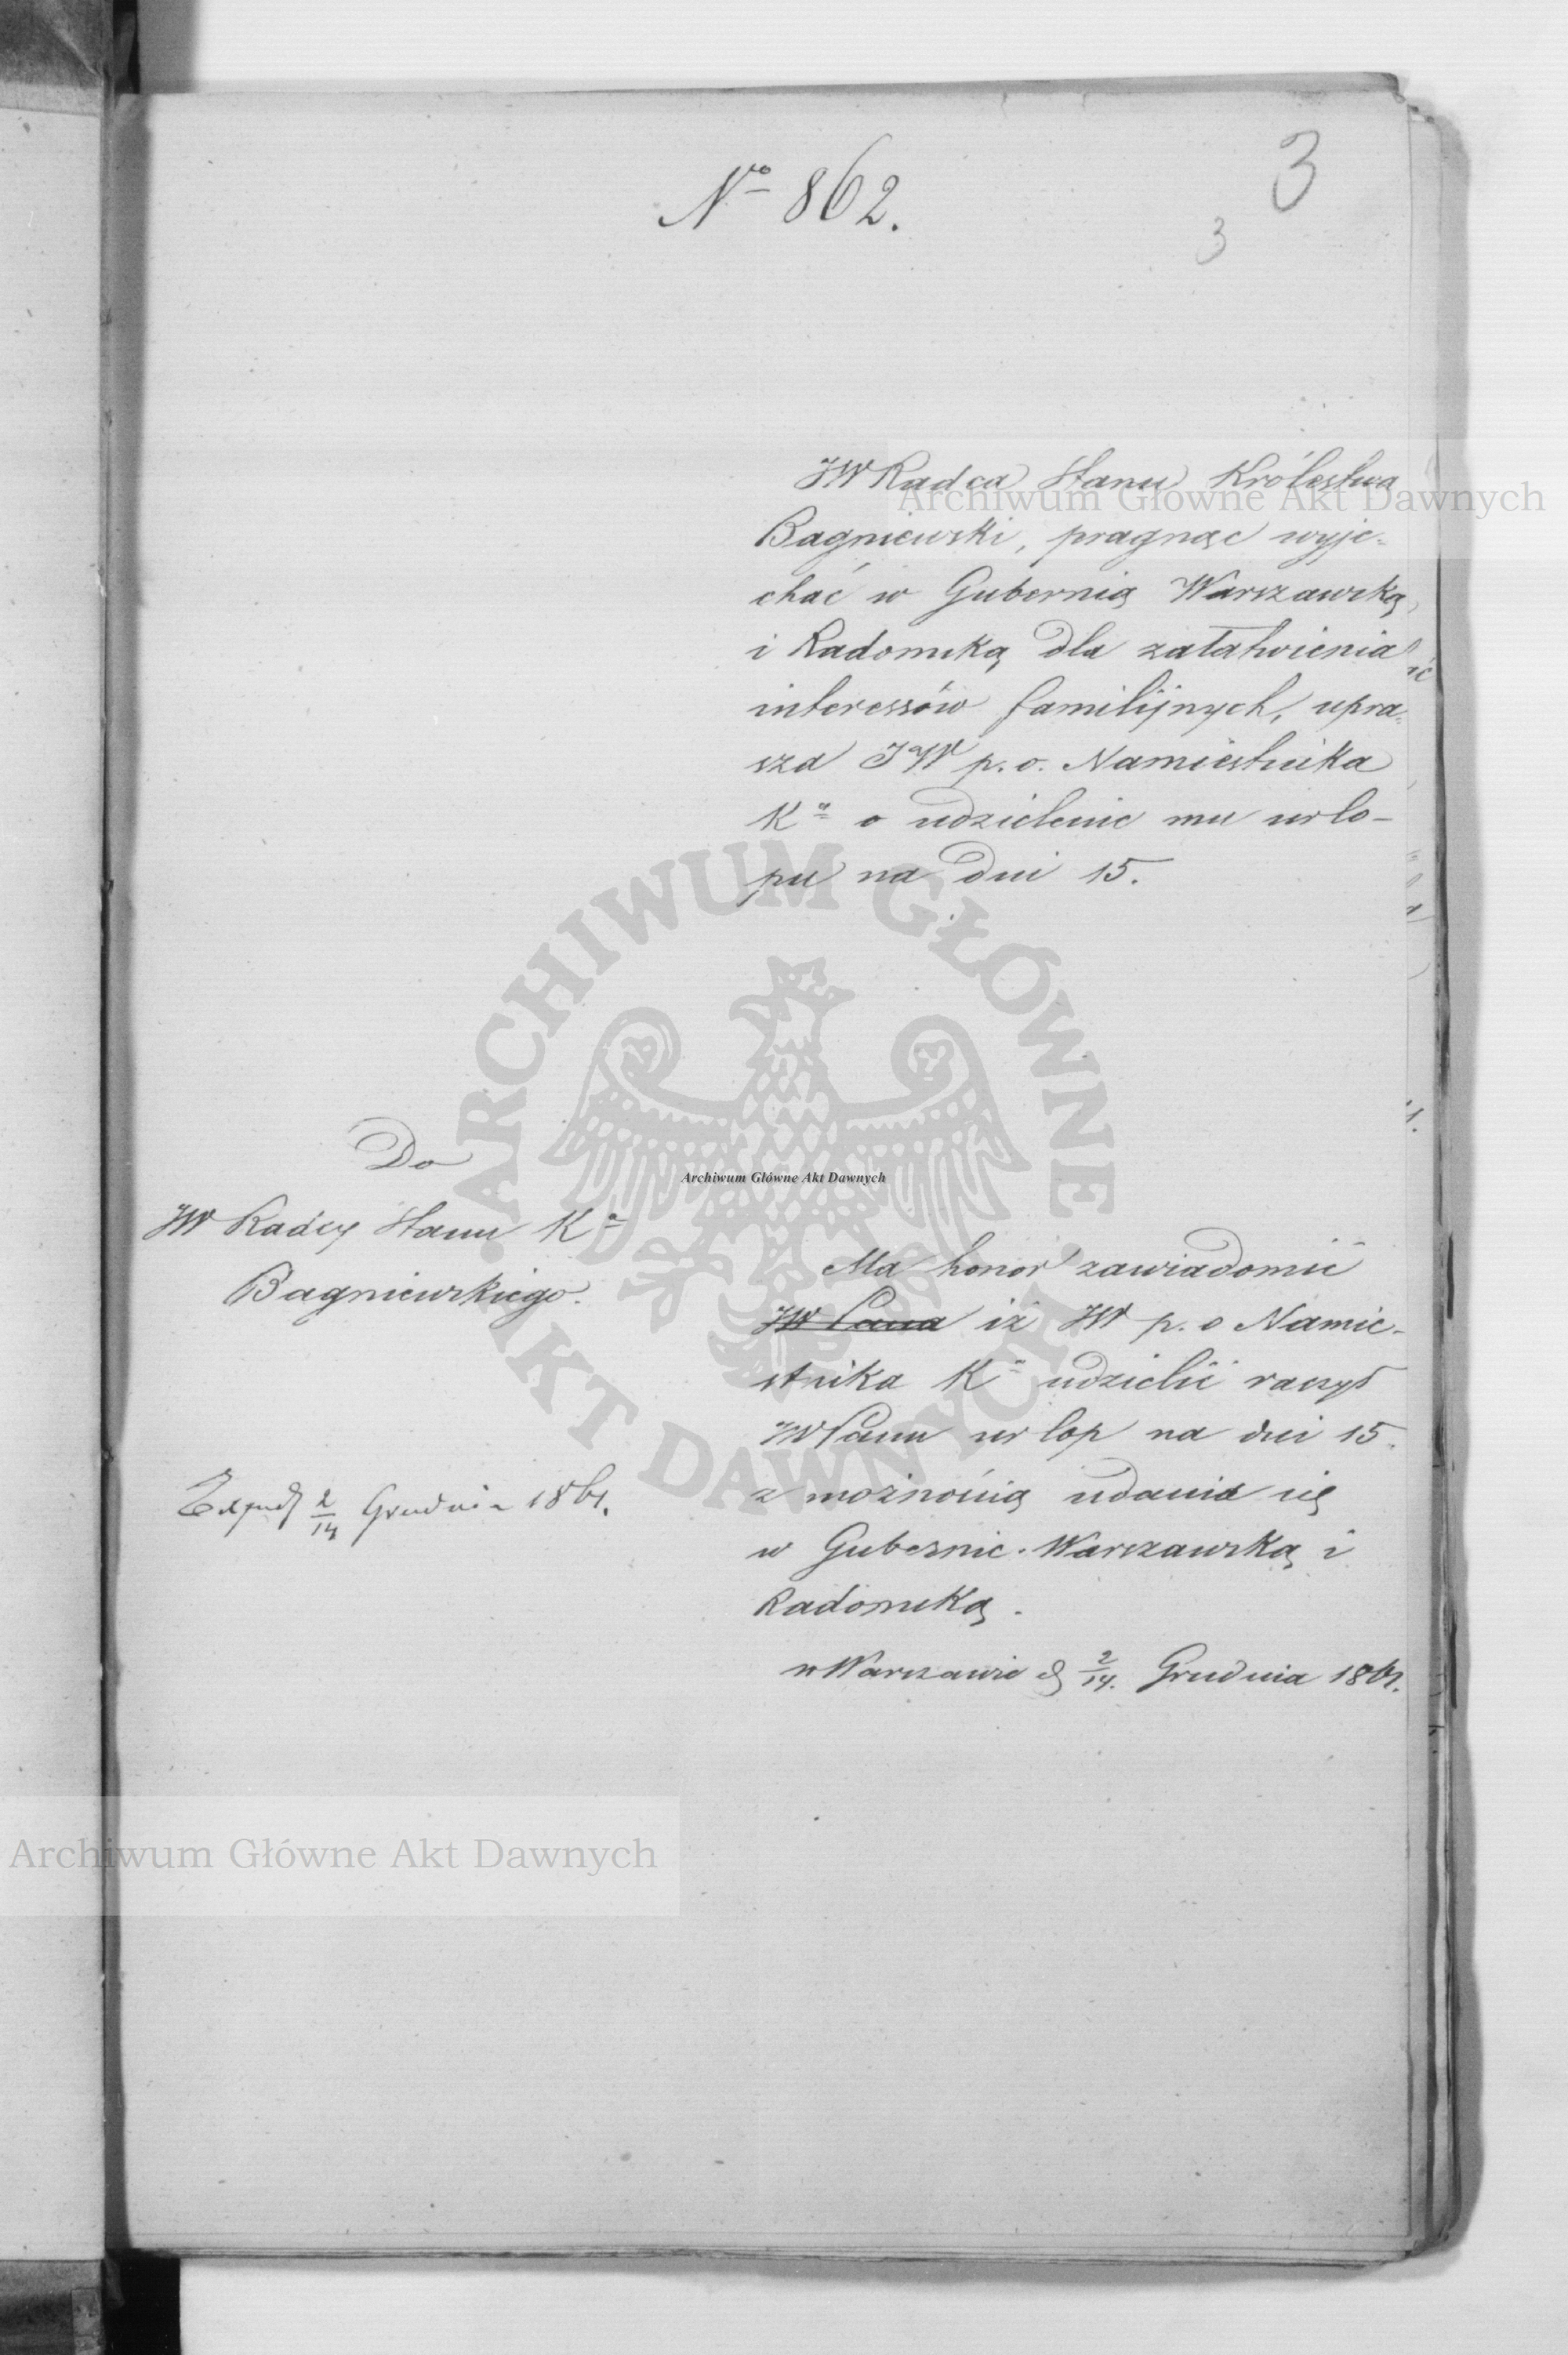 3
No 862.
3
JW Radca Stanu Królestwa
Bagniewski, pragnąc wyje-
chać w Gubernią Warszawską
i Radomską dla załatwienia
interessów familijnych, upra-
sza JW p. o. Namiestnika
Ka o udzielenie mu urlo-
pu na dni 15.
Do
JW Radcy Stanu Ka
Bagniewskiego.
Ma honor zawiadomić
JW Pana iż JW p. o Namie-
stnika Ka udzielić raczył
JWPanu urlop na dni 15.
z możnością udania się
w Gubernie Warszawską i
Radomską.
w Warszawie d 2/14. Grudnia 1861.
Exped 2/14 Grudnia 1861.
Archiwum Główne Akt Dawnych
ARCHIWUM GŁÓWNE AKT DAWNYCH
Archiwum Główne Akt Dawnych
Archiwum Główne Akt Dawnych